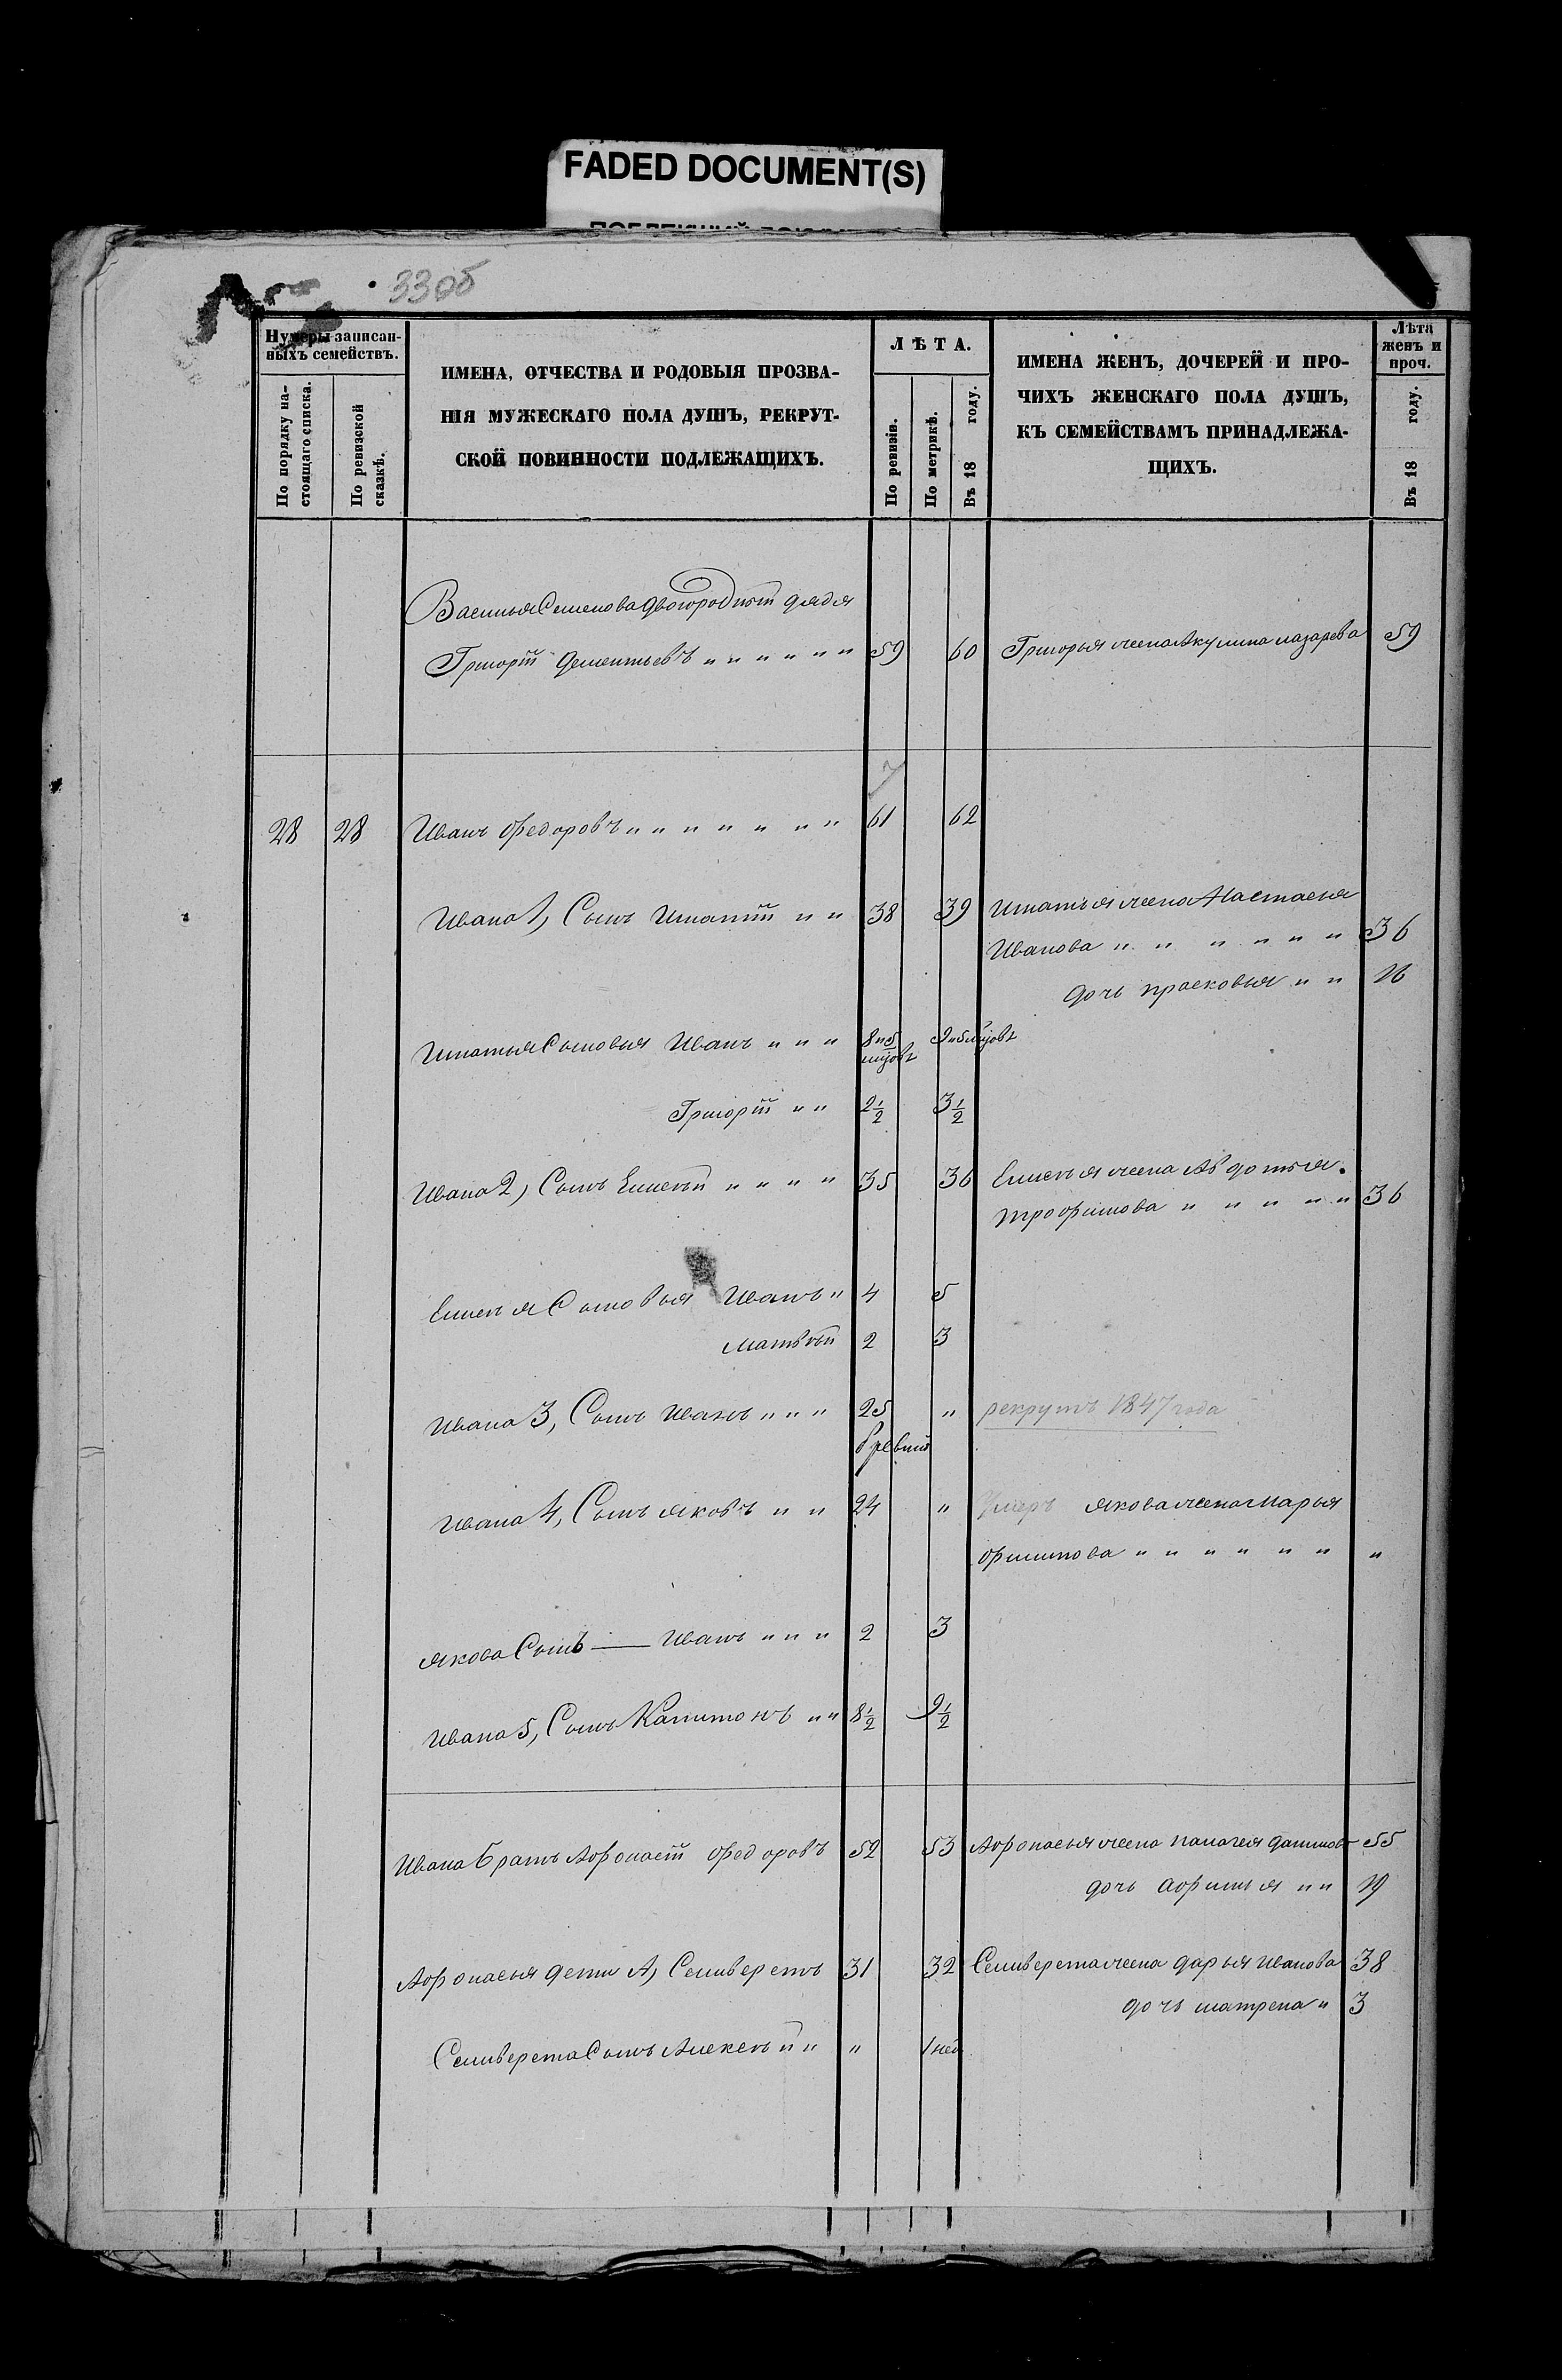 FADED DOCUMENT(S)
33об
Нумеры записан-
ныхъ семействъ.
По порядку на-
стоящаго списка.
По ревизской
сказкѣ.
ИМЕНА, ОТЧЕСТВА И РОДОВЫЯ ПРОЗВА-
НІЯ МУЖЕСКАГО ПОЛА ДУШЪ, РЕКРУТ-
СКОЙ ПОВИННОСТИ ПОДЛЕЖАЩИХЪ.
ЛѢТА.
По ревизіи.
По метрикѣ.
Въ 18 году.
ИМЕНА ЖЕНЪ, ДОЧЕРЕЙ И ПРО-
ЧИХЪ ЖЕНСКАГО ПОЛА ДУШЪ,
КЪ СЕМЕЙСТВАМЪ ПРИНАДЛЕЖА-
ЩИХЪ.
Лѣта
женъ и
проч.
Въ 18 году.
Василья Семенова двоюродный дядя
Григорій Дементьевъ " " " " " " 59 60 Григорья жена Акулина лазарева 59
28 28 Иванъ Федоровъ " " " " " " " 61 62
Ивана 1, Сынъ Игнатій " " 38 39 Игнатья жена Настасья
Иванова " " " " " " 36
дочь прасковья " " 16
Игнатья Сыновья Иванъ " " " 8 и 5 мцовъ 9 и 5 мцовъ
Григорій " " 2½ 3½
Ивана 2, Сынъ Елисѣй " " " " 35 36 Елисѣя жена Авдотья
трофимова " " " " " 36
Елисѣя Сыновья Иванъ " 4 5
матвѣй 2 3
Ивана 3, Сынъ Иванъ " " " 25 " рекрутъ 1847 года
Ивана 4, Сынъ яковъ " " 24 " Умеръ якова жена Марья
филипова " " " " " " "
якова Сынъ — Иванъ " " " 2 3
Ивана 5, Сынъ Капитонъ " " 8½ 9½
Ивана братъ Афонасій Федоровъ 52 53 Афонасья жена палагея 55
дочь афимья " " 19
Афонасья дети 1, Селиверстъ 31 32 Селиверста жена дарья иванова 38
дочь матрена " 3
Селиверста Сынъ Алексѣй " " 1 нед